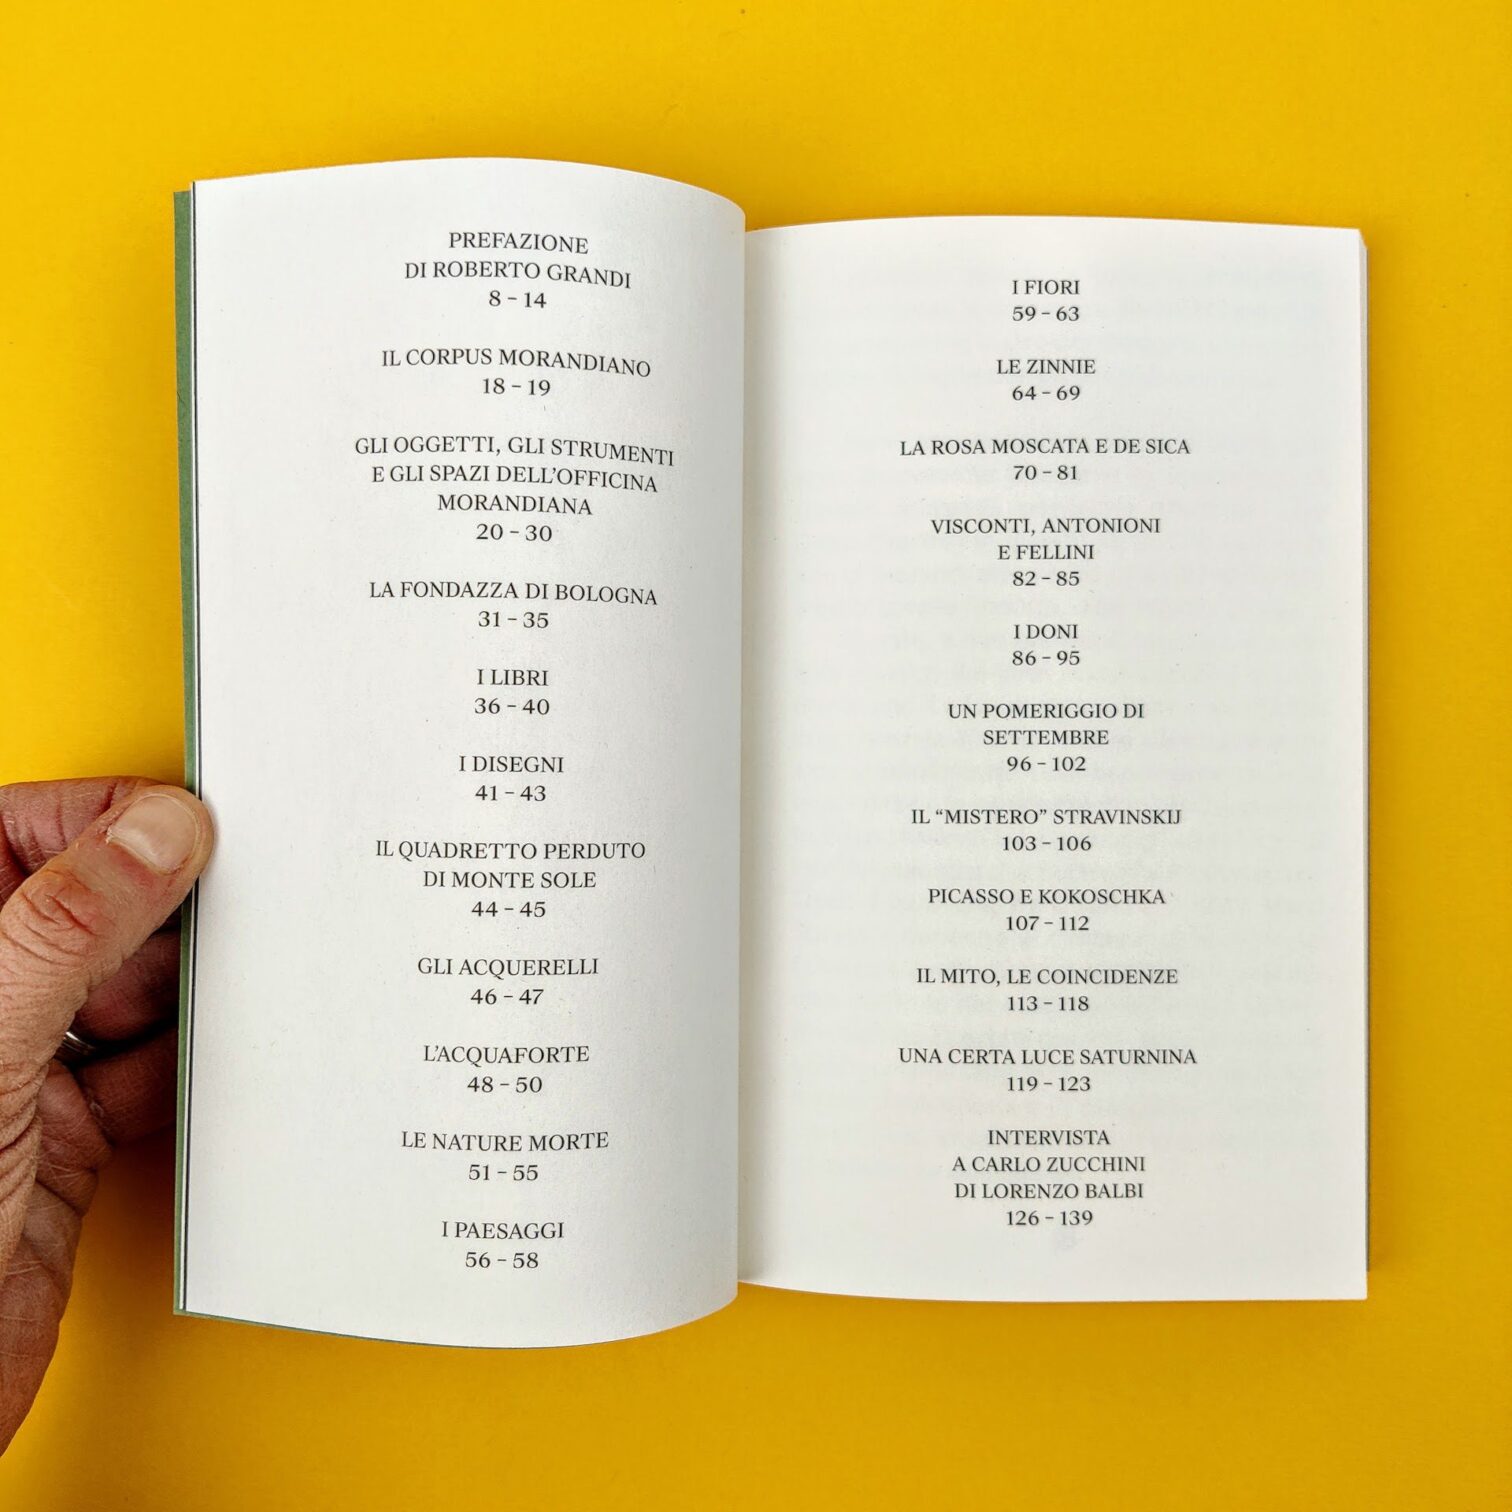 PREFAZIONE
DI ROBERTO GRANDI
8 – 14
IL CORPUS MORANDIANO
18 – 19
GLI OGGETTI, GLI STRUMENTI
E GLI SPAZI DELL’OFFICINA
MORANDIANA
20 – 30
LA FONDAZZA DI BOLOGNA
31 – 35
I LIBRI
36 – 40
I DISEGNI
41 – 43
IL QUADRETTO PERDUTO
DI MONTE SOLE
44 – 45
GLI ACQUERELLI
46 – 47
L’ACQUAFORTE
48 – 50
LE NATURE MORTE
51 – 55
I PAESAGGI
56 – 58
I FIORI
59 – 63
LE ZINNIE
64 – 69
LA ROSA MOSCATA E DE SICA
70 – 81
VISCONTI, ANTONIONI
E FELLINI
82 – 85
I DONI
86 – 95
UN POMERIGGIO DI
SETTEMBRE
96 – 102
IL “MISTERO” STRAVINSKIJ
103 – 106
PICASSO E KOKOSCHKA
107 – 112
IL MITO, LE COINCIDENZE
113 – 118
UNA CERTA LUCE SATURNINA
119 – 123
INTERVISTA
A CARLO ZUCCHINI
DI LORENZO BALBI
126 – 139